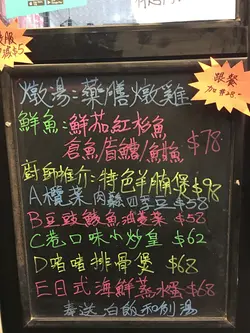 減$5
跟餐
燉湯:藥膳燉雞
鮮魚:鮮茄紅衫魚
倉魚/盲鰽/鯏魚 $78
廚師推介:特色羊腩煲$98
A欖菜肉鬆四季豆 $58
B豆豉鯪魚油麥菜 $58
C巷口味小炒皇 $62
D啫啫排骨煲 $68
E日式海鮮蒸水蛋 $68
奉送 白飯和例湯